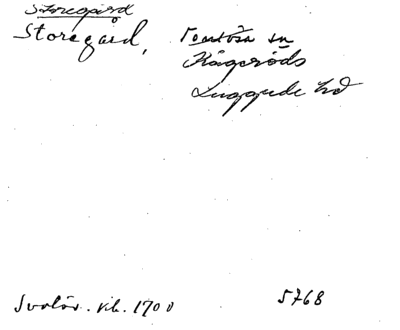 Storegård
Storegård, Torrlösa sn
Kågeröds
Luggude hd
Svalöv. vik. 1700 5768